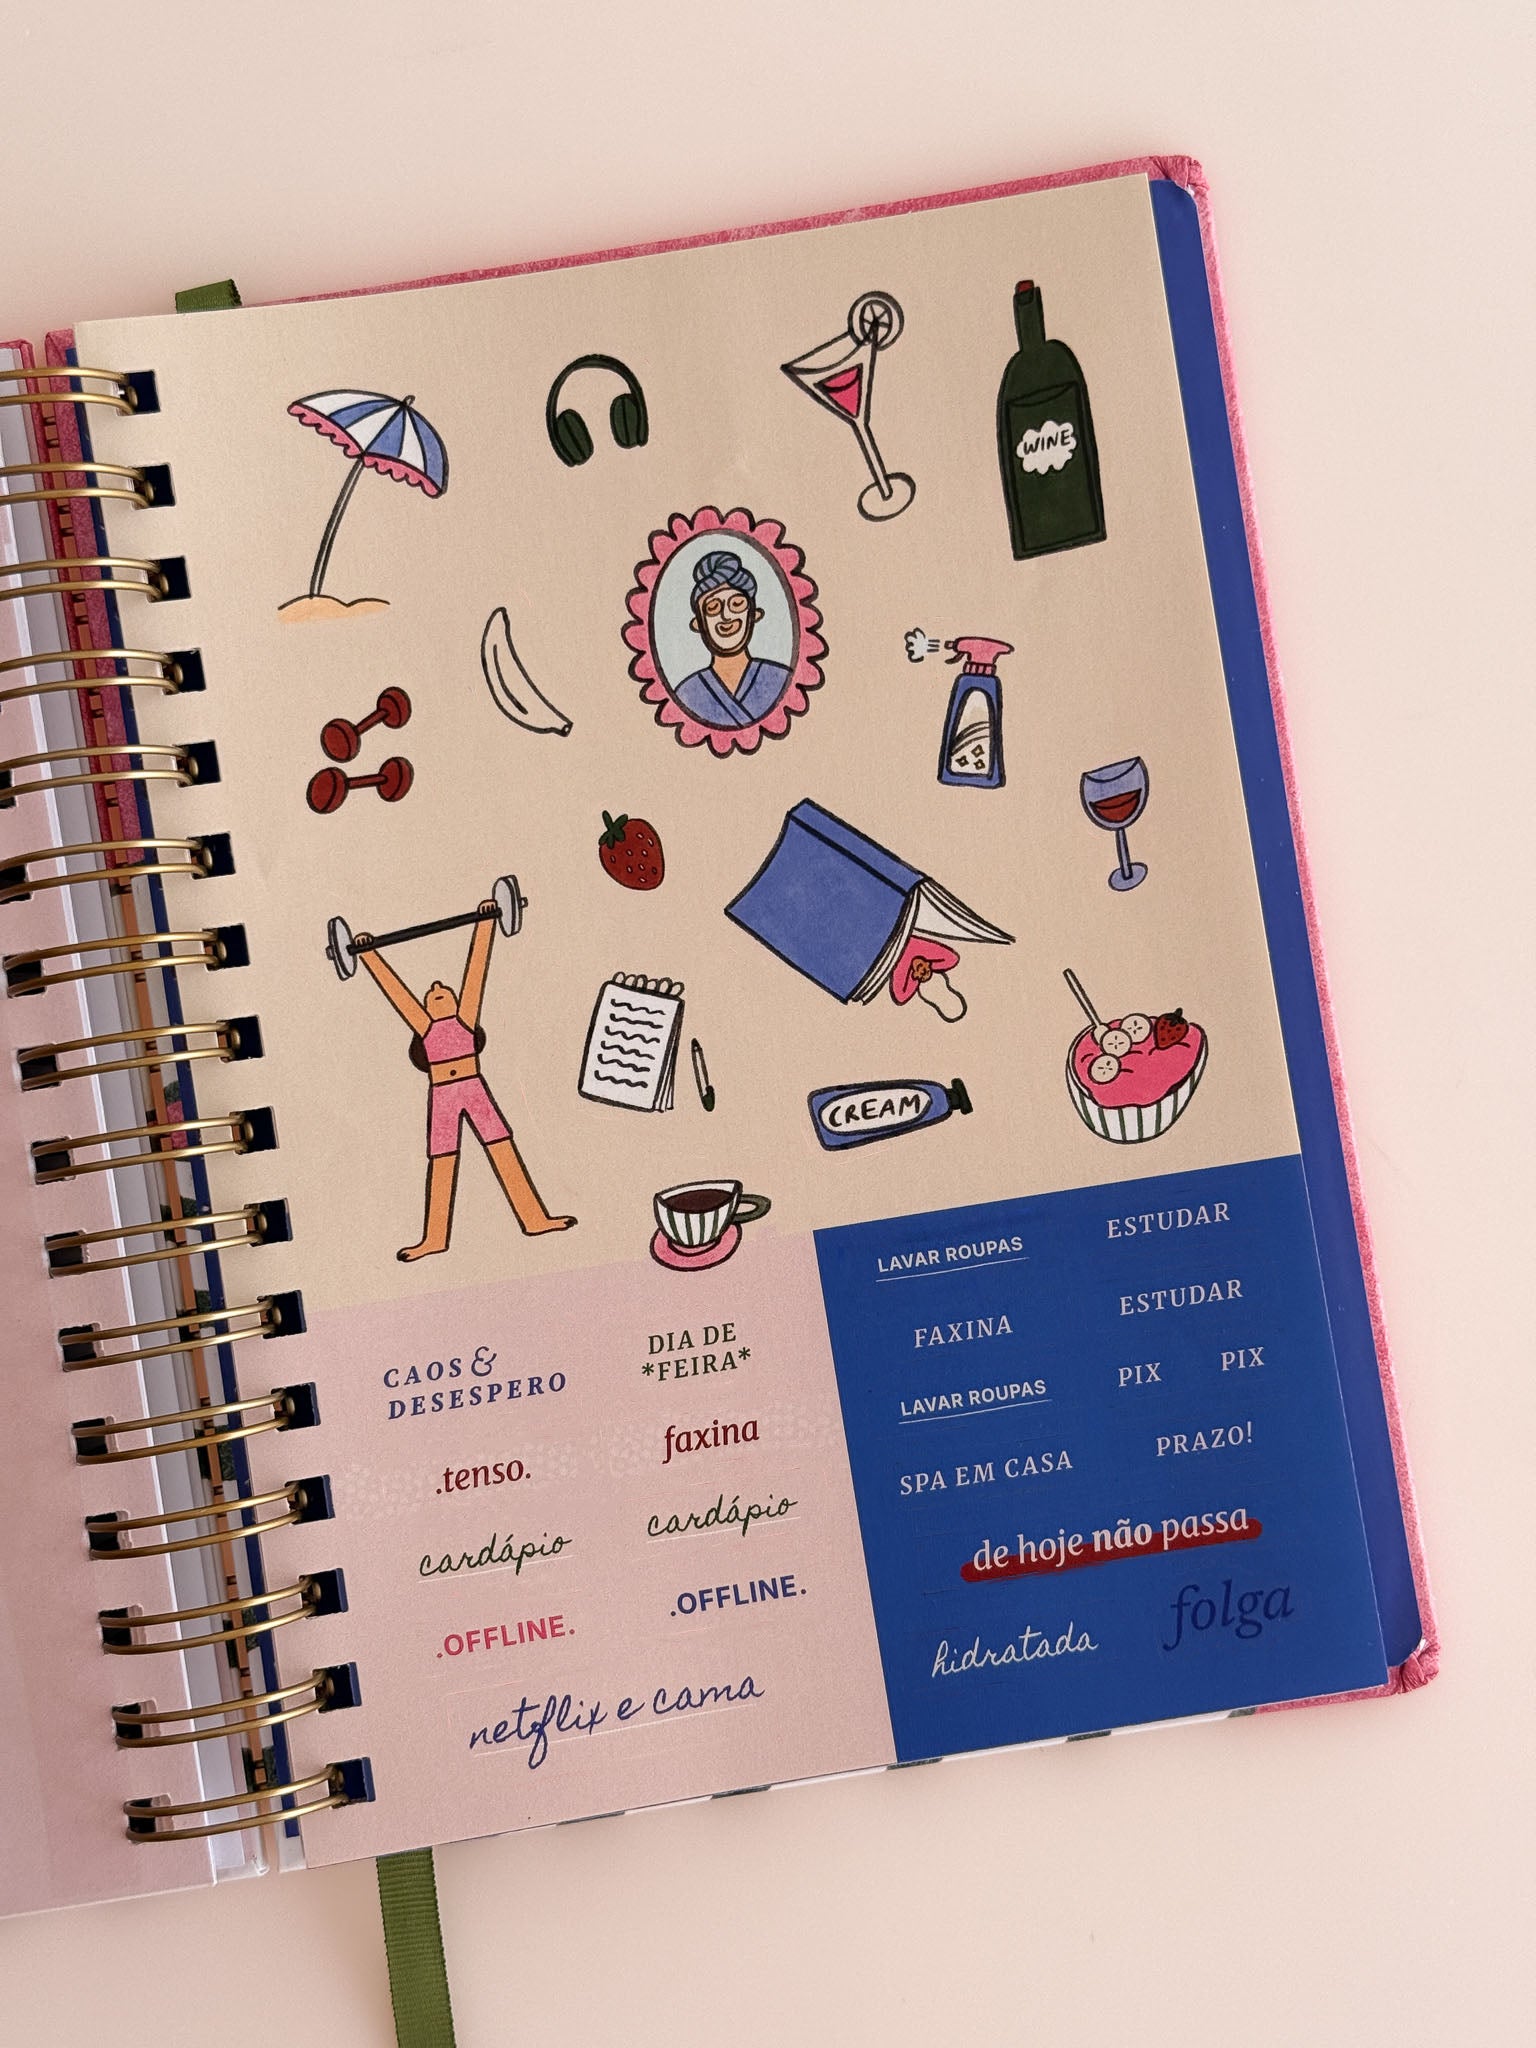 WINE
CREAM
CAOS &
DESESPERO
DIA DE
*FEIRA*
.tenso.
faxina
cardápio
cardápio
.OFFLINE.
.OFFLINE.
netflix e cama
LAVAR ROUPAS
ESTUDAR
FAXINA
ESTUDAR
LAVAR ROUPAS
PIX
PIX
SPA EM CASA
PRAZO!
de hoje não passa
hidratada
folga